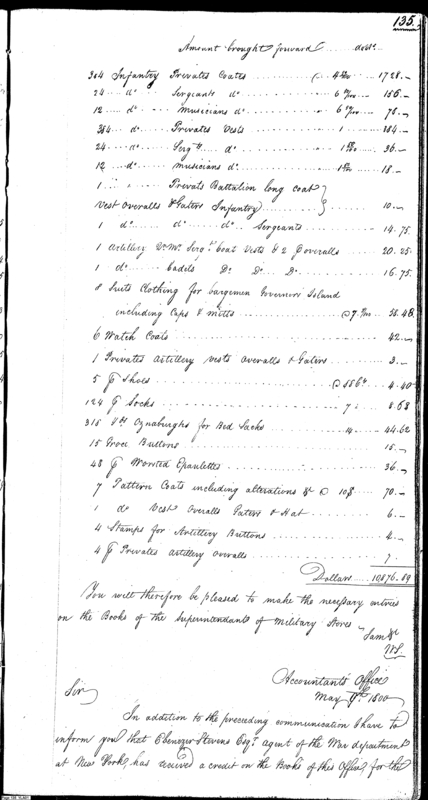 135.
Amount brought forward .... dolls.
384 Infantry Privates Coats ........ @ 4 50/100 ... 1728.–
24 ... do Sergeants do ........ 6 50/100 ... 156.–
12 ... do ... musicians do ........ 6 50/100 ... 78.–
384 ... do ... Privates Vests ........ 1 ........ 384.–
24 ... do ... Sergts ... do ........ 1 50/100 ... 36.–
12 ... do ... musicians do ........ 1 50/100 ... 18.–
1 ... " ... Privats Battalion long coat }
Vest overalls & Gaters Infantry } ........ 10.–
1 ... do ... do ... do .. Sergeants ........ 14.75
1 Artillery Sergt Coat Vests & 2 p overalls ........ 20.25
1 do ... Cadets Do Do Do ........ 16.75
8 Suits Clothing for bargemen Governors Island
including Caps & Mitts ........ @ 7 ... 58.48
6 Watch Coats ........ 42.–
1 Privates Artillery Vests overalls & Gaters ........ 3.–
5 p Shoes ........ @ 88 ... 4.40
124 p Socks ........ 7 ........ 8.68
Yds Oznaburghs for Bed Sacks ........ 14 ........ 44.62
15 Groce Buttons ........ 15.–
48 p Worsted Epauletts ........ 36.–
7 Pattern Coats including alterations &c @ 10$ .... 70.–
1 do Vest Overalls Gaters & Hat ........ 6.–
4 Stamps for Artillery Buttons ........ 4.–
4 p Privates Artillery overalls ........ 7.
Dollars .... 10876.89
You will therefore be pleased to make the necessary entries
on the Books of the Superintendants of Military Stores
"I am &c
WS.
Accountants Office
May 9th 1800
Sir
In addition to the preceding communication I have to
inform you that Ebenezer Stevens Esqr agent of the War department
at New York has received a credit on the Books of this Office, for the